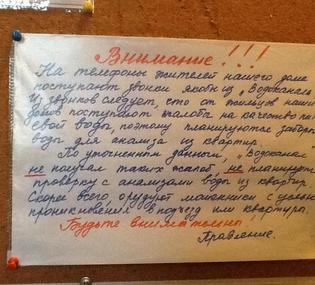 Внимание!!!
На телефоны жителей нашего дома
поступают звонки якобы из „Водоканала
Из звонков следует, что от жильцов наших
домов поступают жалобы на качество
свой воды, поэтому планируются заборы
воды для анализа из квартир.
По уточненным данным, „Водоканал
не получал таких жалоб, не планирует
проверку с анализами воды из квартир.
Скорее всего, орудуют мошенники с целью
проникновения в подъезд или квартиры.
Будьте внимательны!
Правление.